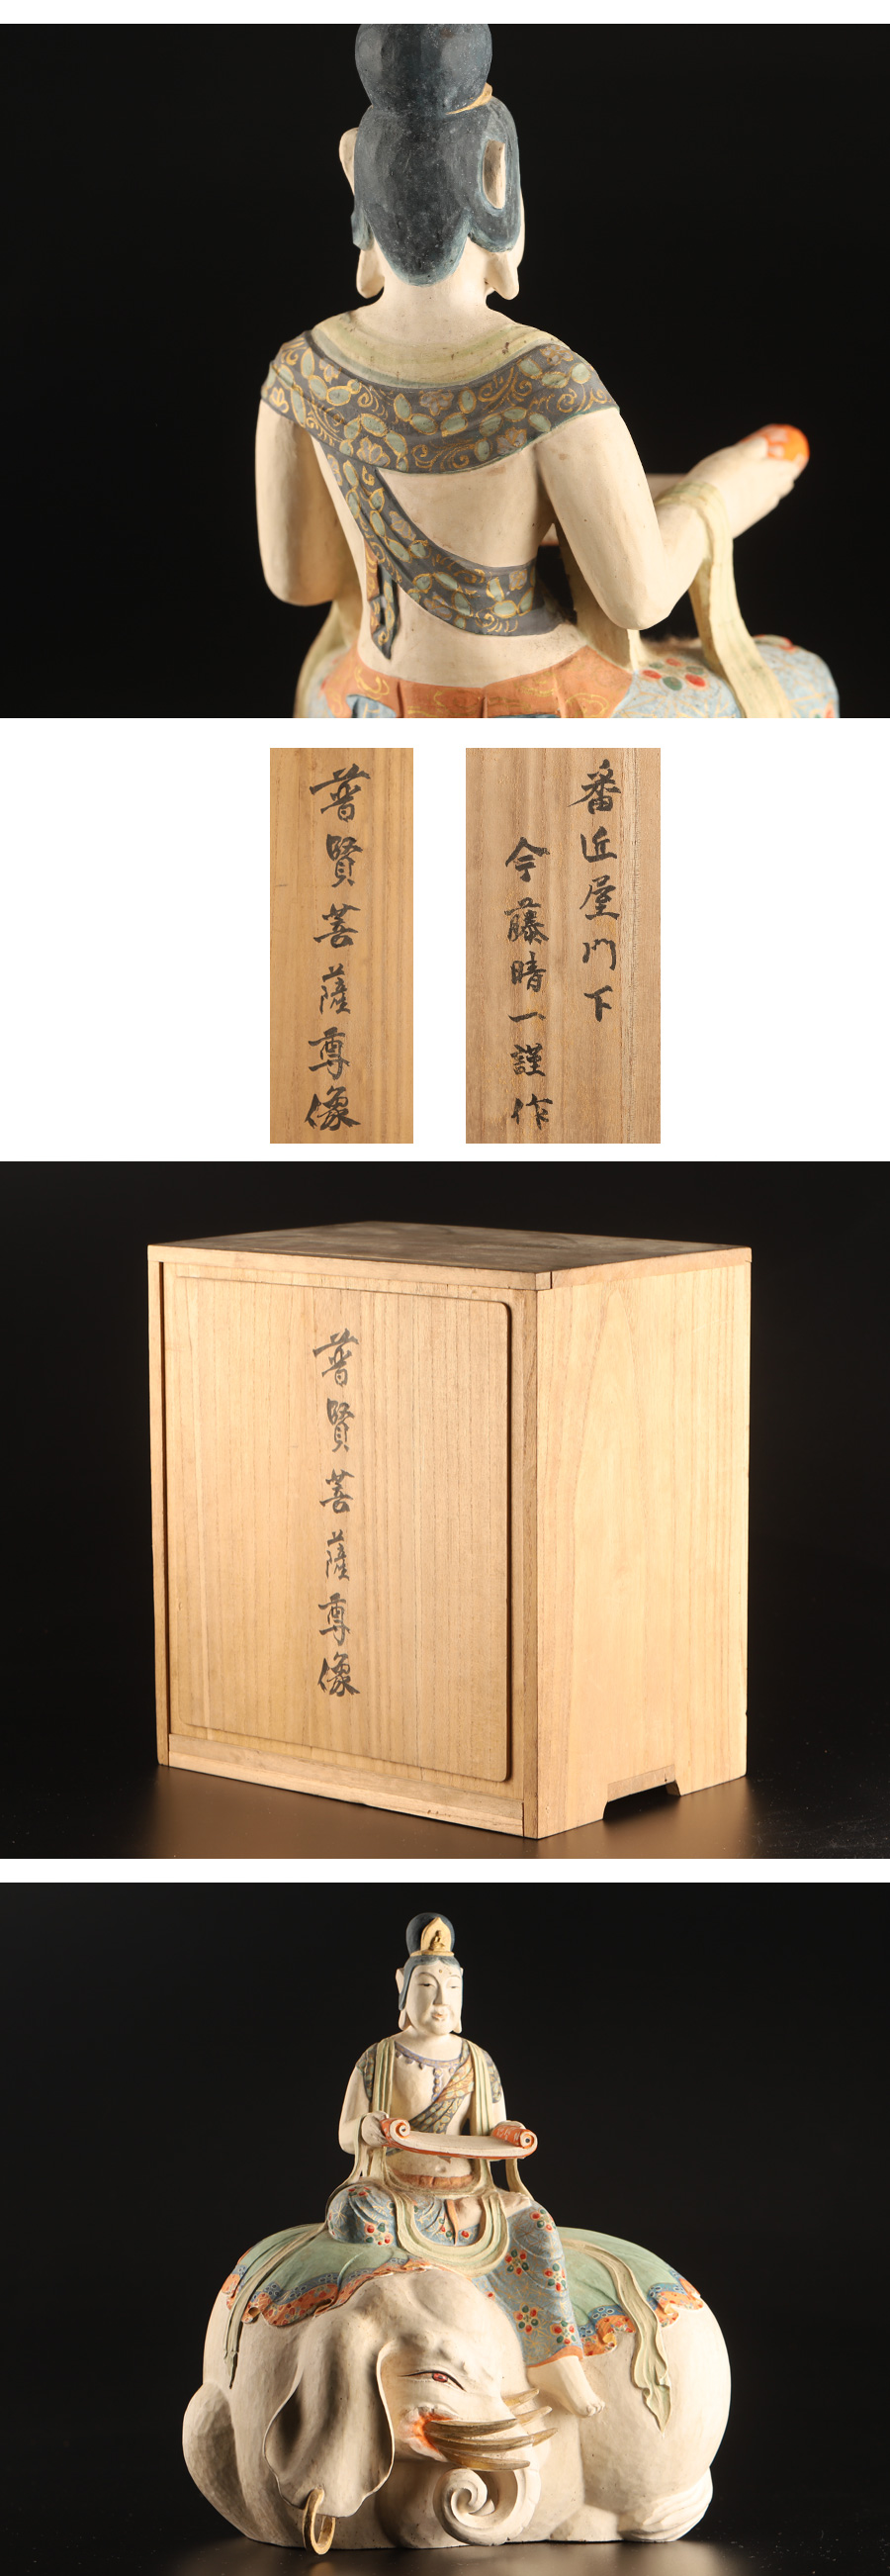 普賢菩薩尊像
番匠屋門下
今藤晴一謹作
普賢菩薩尊像